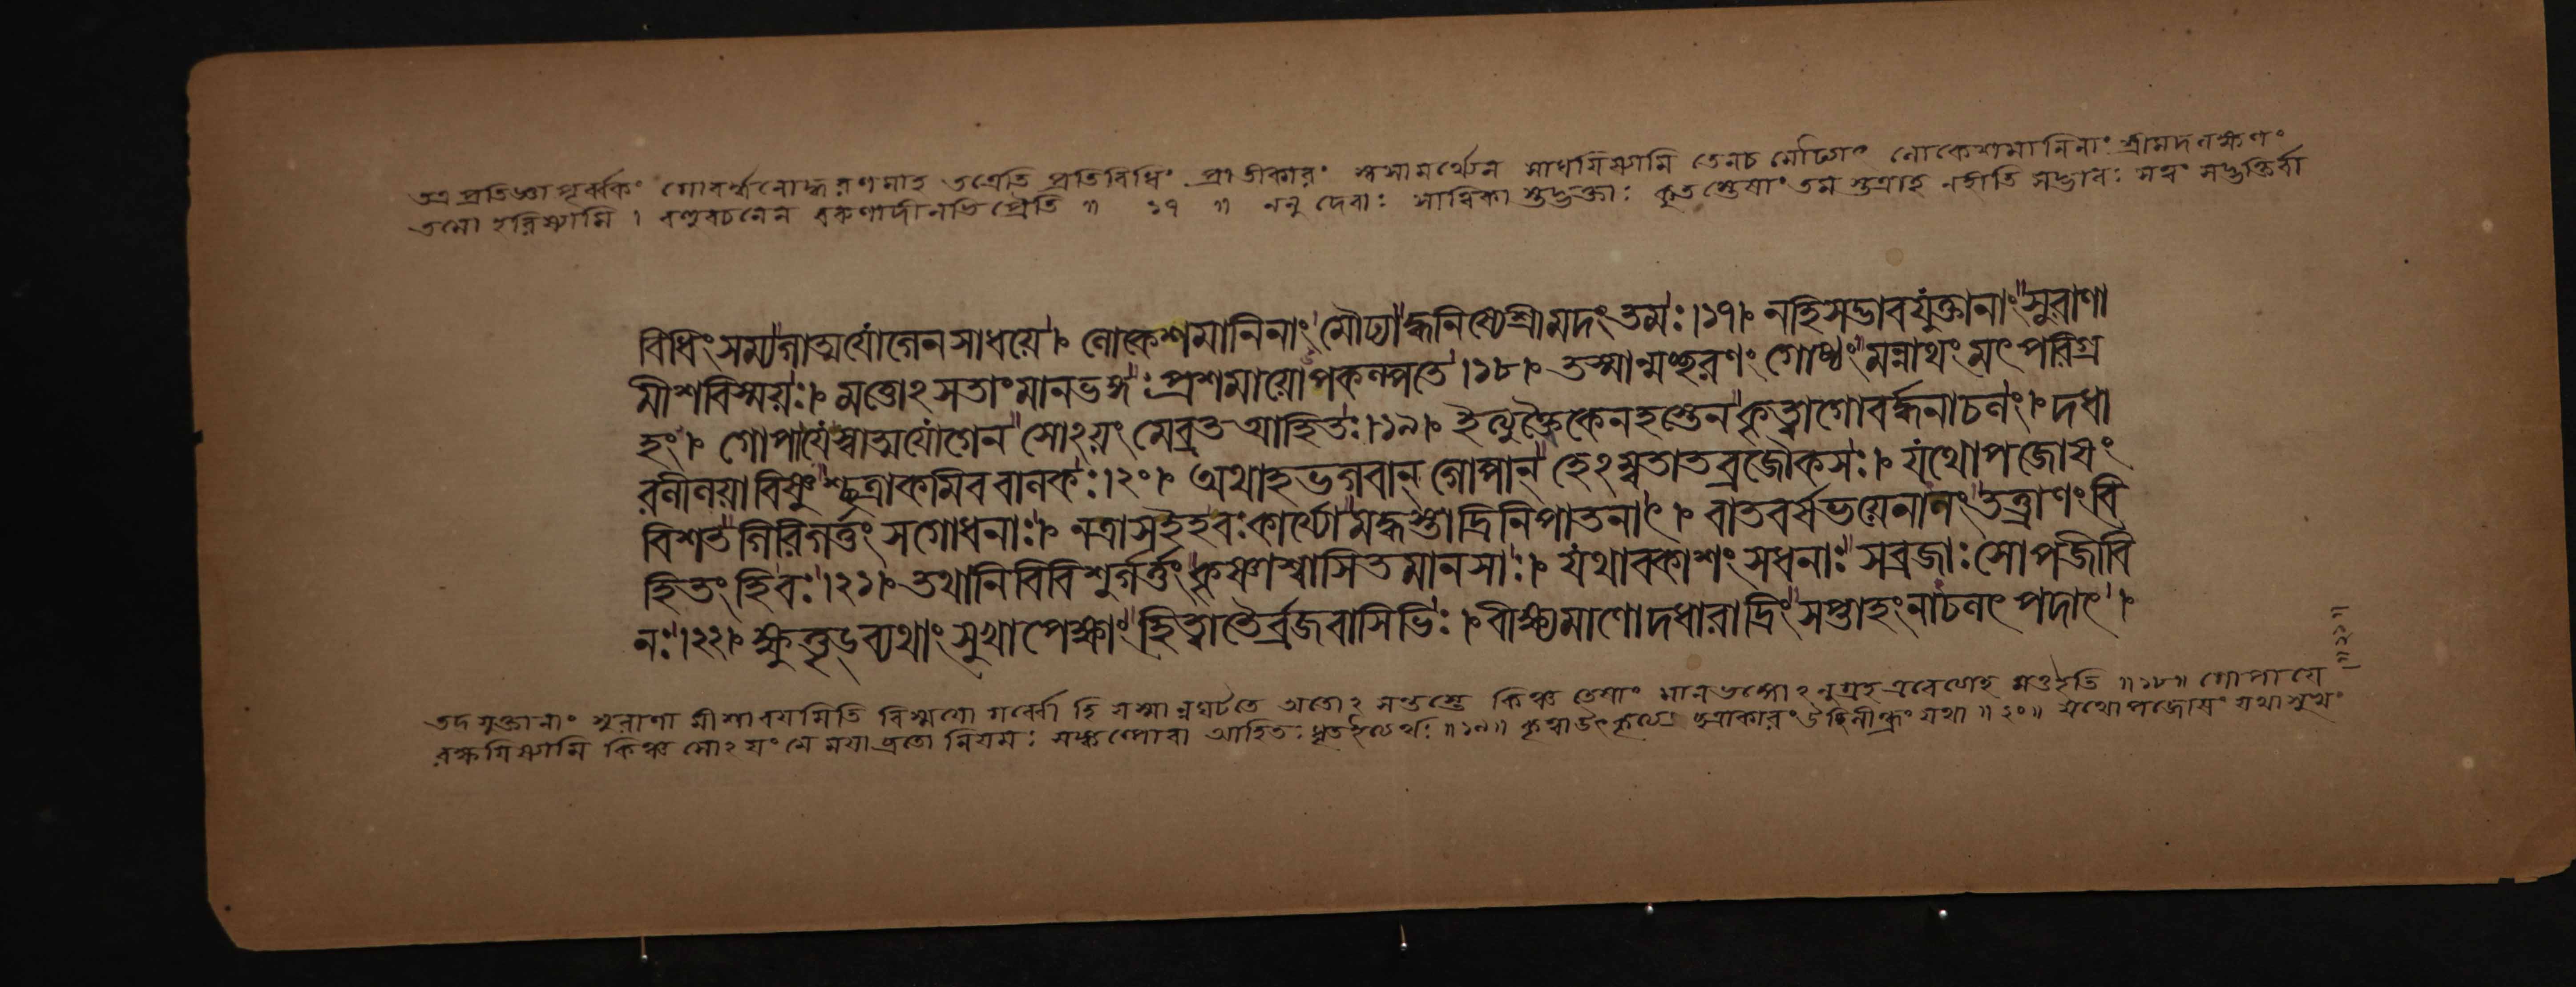 তত্র প্রতিজ্ঞাপূর্ব্বকং গোবর্দ্ধনোদ্ধরণমাহ তত্রেতি প্রতিবিধিং প্রতীকারং স্বসামর্থ্যেন সাধয়িষ্যামি তেনচ মৌঢ্যাৎ লোকেশমানিনাং শ্রীমদলক্ষণং
তমো হরিষ্যামি । বহুবচনেন বরুণাদীনভিপ্রৈতি ॥ ১৭ ॥ ননু দেবাঃ সাত্ত্বিকা স্ত্বদ্ভক্তাঃ কুত স্তেষাং তম স্তত্রাহ নহীতি সদ্ভাবঃ সত্ত্বং মদ্ভক্তির্বা
বিধিংসম্যগাত্মযোগেনসাধয়ে। লোকেশমানিনাং মৌঢ্যাদ্ধনিষ্যেশ্রীমদংতমঃ।১৭। নহিসদ্ভাবযুক্তানাংসুরাণা
মীশবিস্ময়ঃ। মত্তোঽসতাংমানভঙ্গঃপ্রশমায়োপকল্পতে।১৮। তস্মান্মচ্ছরণং গোষ্ঠংমন্নাথংমৎপরিগ্র
হং। গোপায়েস্বাত্মযোগেন সোঽয়ংমেব্রতআহিতঃ।১৯। ইত্যুক্ত্বৈকেনহস্তেনকৃত্বাগোবর্দ্ধনাচলং। দধা
রলীলয়াবিষ্ণুশ্ছত্রাকমিববালকঃ।২০। অথাহভগবান্ গোপান্ হেঽম্বতাতব্রজৌকসঃ। যথোপজোষং
বিশতগিরিগর্ত্তংসগোধনাঃ। নত্রাসইহবঃকার্য্যোমদ্ধস্তাদ্রিনিপাতনাৎ। বাতবর্ষভয়েনালংতত্ত্রাণংবি
হিতংহিবঃ।২১। তথানিবিবিশুর্গর্ত্তংকৃষ্ণাশ্বাসিতমানসাঃ। যথাবকাশংসধনাঃসব্রজাঃসোপজীবি
নঃ।২২। ক্ষুত্তৃড়্ব্যথাংসুখাপেক্ষাংহিত্বাতৈর্ব্রজবাসিভিঃ। বীক্ষ্যমাণোদধারাদ্রিংসপ্তাহংনাচলৎপদাৎ।
তদযুক্তানাং সুরাণা মীশাবয়মিতি বিস্ময়ো গর্ব্বো হি যস্মান্নঘটতে অতোঽ সন্তস্তে কিঞ্চ তেষাং মানভঙ্গোঽনুগ্রহএবেত্যাহ মত্তইতি ॥১৮॥ গোপায়ে
রক্ষয়িষ্যামি কিঞ্চ সোঽয়ং মে ময়া ব্রতো নিয়মঃ সঙ্কল্পোবা আহিতঃ ধৃতইত্যর্থঃ ॥১৯॥ যথা ॥২০॥ যথোপজোষং যথাসুখং